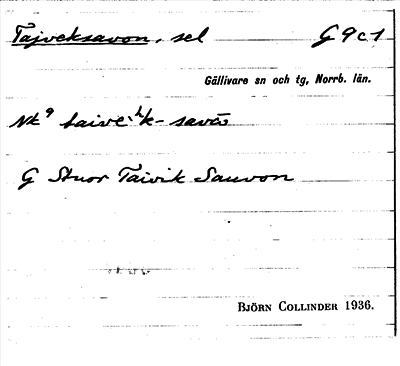 Tajveksavon, sel G9c1
Gällivare sn och tg, Norrb. län.
G Stuor Taivik Sauvon
BJÖRN COLLINDER 1936.